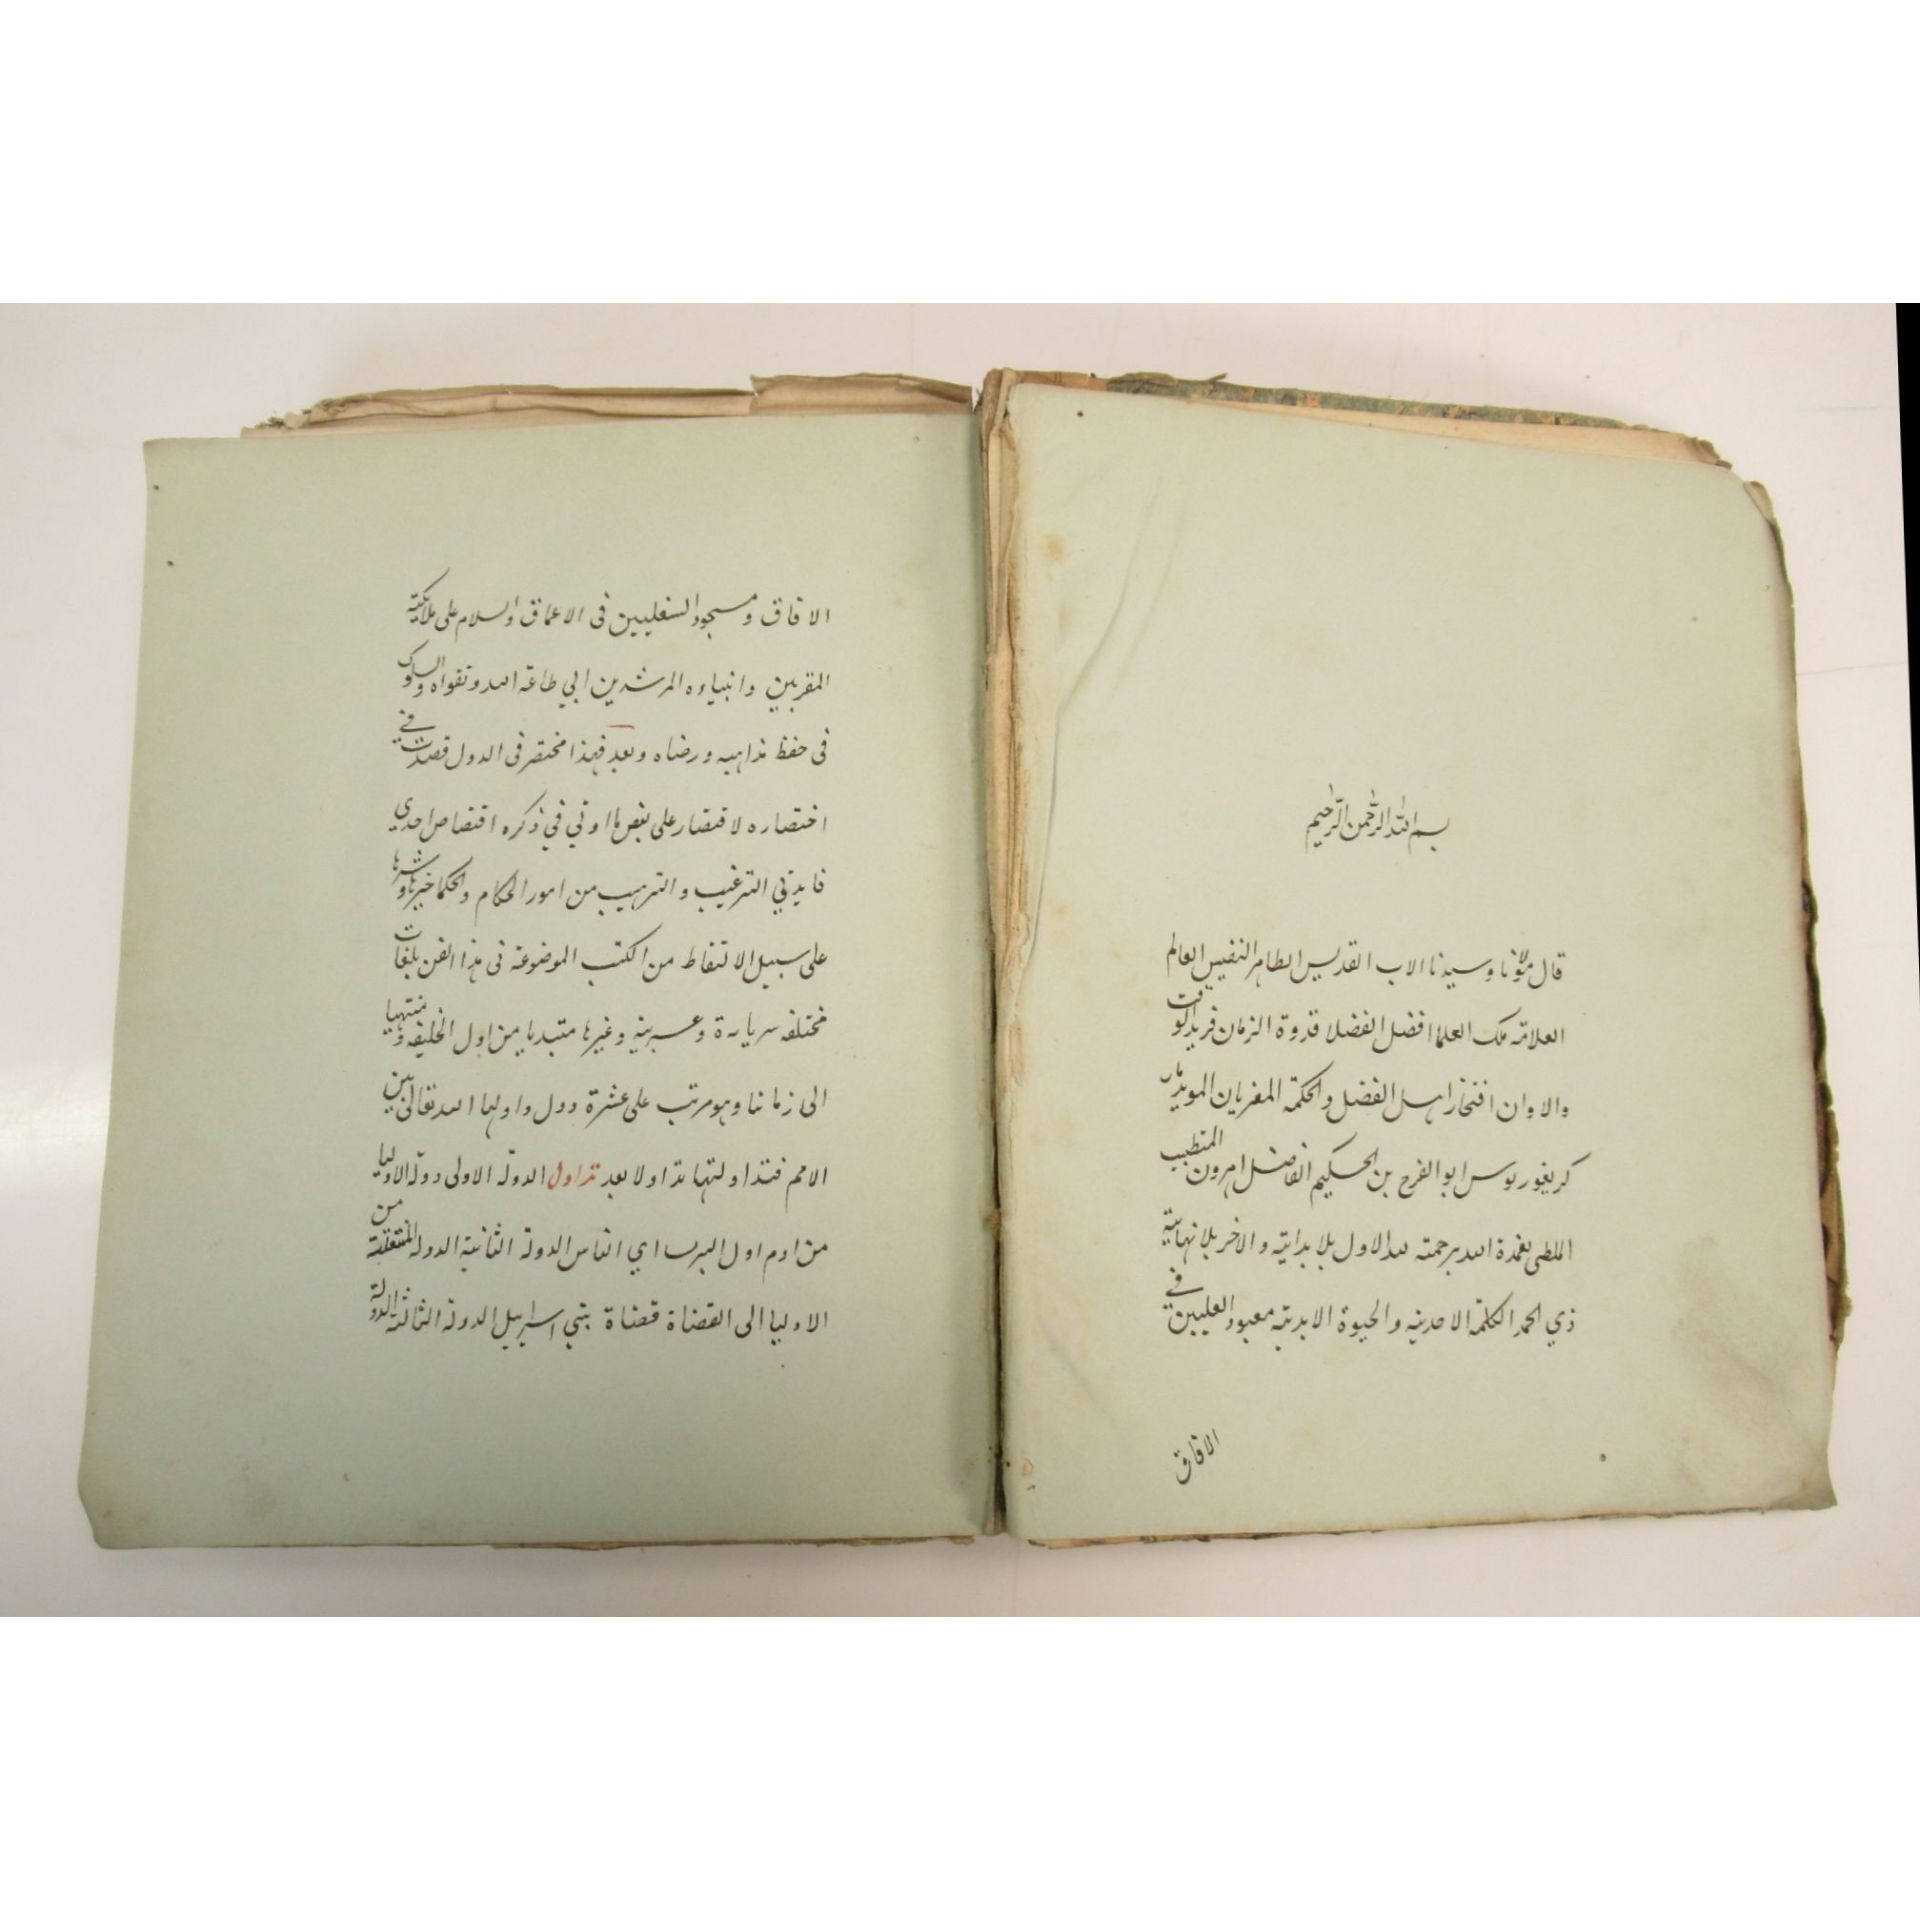 بسم الله الرحمن الرحيم
قال مولانا وسيدنا الاب القديس الطاهر النفيس العالم
العلامه ملك العلما افضل الفضلا قدوة الزمان فريد الوقت
والاوان افتخار اهل الفضل والحكمة المفريان المويد مار
كريغوريوس ابو الفرح بن الحكيم الفاضل اهرون المتطبب
الملطى تغمدة الله برحمته لله الاول بلا بدايته والاخر بلا نهاية
ذي الحمد الكلمة الاحديه والحيوة الابديه معبود العليين في
الافاق
الافاق ومسجود السفليين فى الاعماق والسلام على ملايكيته
المقربين وانبياءه المرشدين الي طاعة الله وتقواه والسلوك
فى حفظ مذاهبه ورضاه وبعد فهذا مختصر فى الدول قصدت في
اختصاره لاقتصار على بعض ما اوتي في ذكره اقتصاص احدي
فايدتي الترغيب والترهيب من امور الحكام والحكما خيرها وشرها
على سبيل الالتقاط من الكتب الموضوعة فى هذا الفن بلغات
مختلفه سريانة وعربيه وغيرها مبتديا من اول الخليفه ومنتهيا
الى زماننا وهو مرتب على عشرة دول داولها الله تعالى بين
الامم فتداولتها تداولا بعد تداول الدولة الاولى دولة الاوليا
من ادم اول البرسا اي الناس الدولة الثانية الدولة المنتقلة من
الاوليا الى القضاة قضاة بني اسراييل الدولة الثالثة الدولة